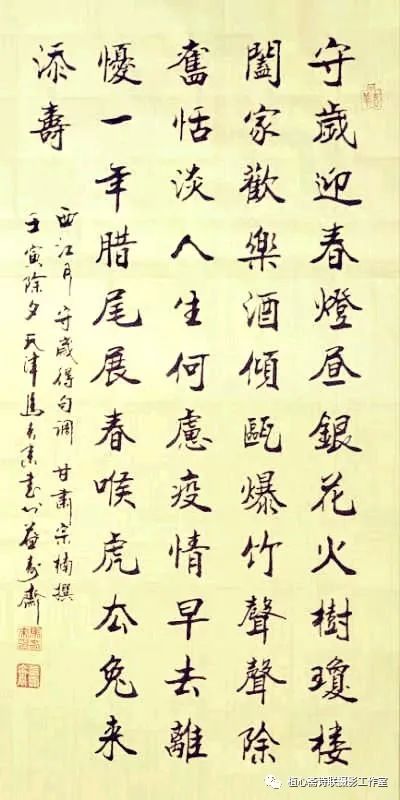 守歲迎春燈昼銀花火樹瓊楼
闔家歡樂酒傾甌爆竹聲聲除
舊恬淡人生何慮疫情早去離
懮一年腊尾展春喉虎去兔来
添壽
西江月 守歲得句调 甘肃宗楠撰
壬寅除夕天津馮書於益寿齋
植心斋诗联摄影工作室